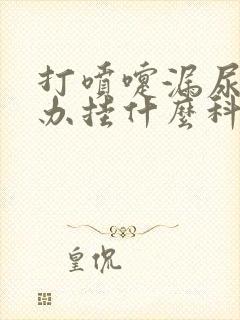 打噴嚏漏尿
办挂什麼科
皇侃